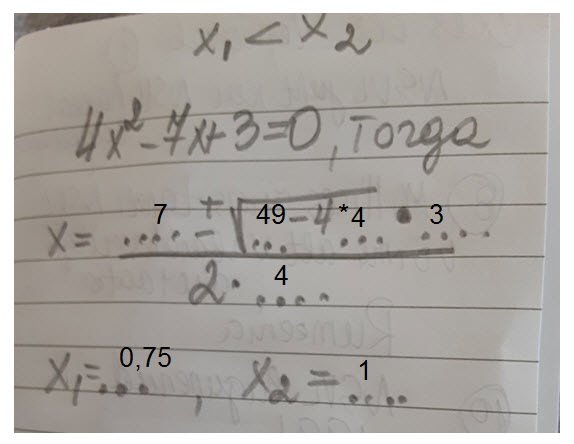 x₁ < x₂
4x² - 7x + 3 = 0, тогда
x = 7 ± √49 - 4 * 4 • 3
2 · 4
x₁ = 0,75, x₂ = 1